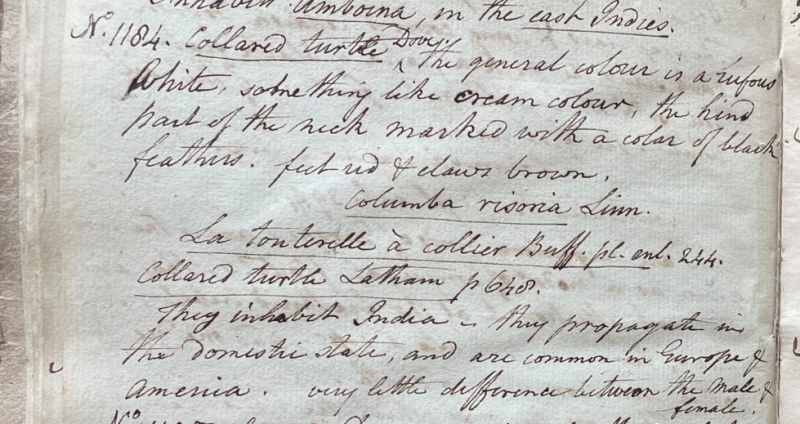 Inhabit Amboina, in the east Indies.
No. 1184. Collared turtle Dove. The general colour is a rufous
White, something like cream colour, the hind
part of the neck marked with a colar of black
feathers. feet red & claws brown.
Columba risoria Linn.
La touterelle à collier Buff. pl. enl. 244.
Collared turtle Latham p 648.
They inhabit India - they propagate in
the domestic state, and are common in Europe &
America. very little difference between the male &
female.